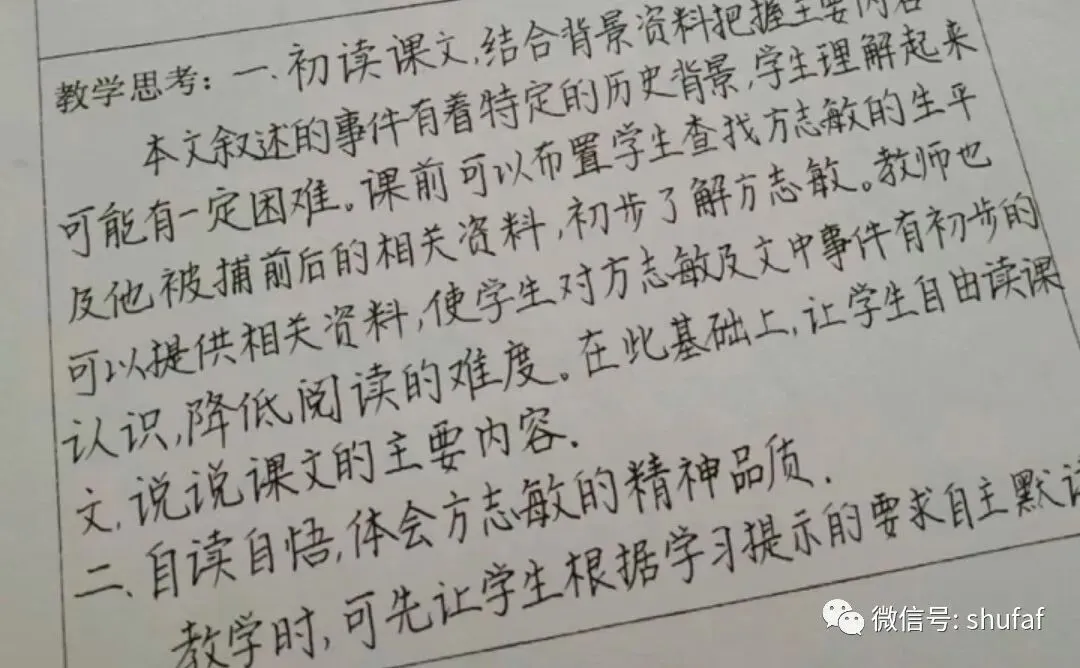 教学思考：一.初读课文，结合背景资料把握主要内容
本文叙述的事件有着特定的历史背景，学生理解起来
可能有一定困难。课前可以布置学生查找方志敏的生平
及他被捕前后的相关资料，初步了解方志敏。教师也
可以提供相关资料，使学生对方志敏及文中事件有初步的
认识，降低阅读的难度。在此基础上，让学生自由读课
文，说说课文的主要内容.
二、自读自悟，体会方志敏的精神品质.
教学时，可先让学生根据学习提示的要求自主默读
微信号: shufaf